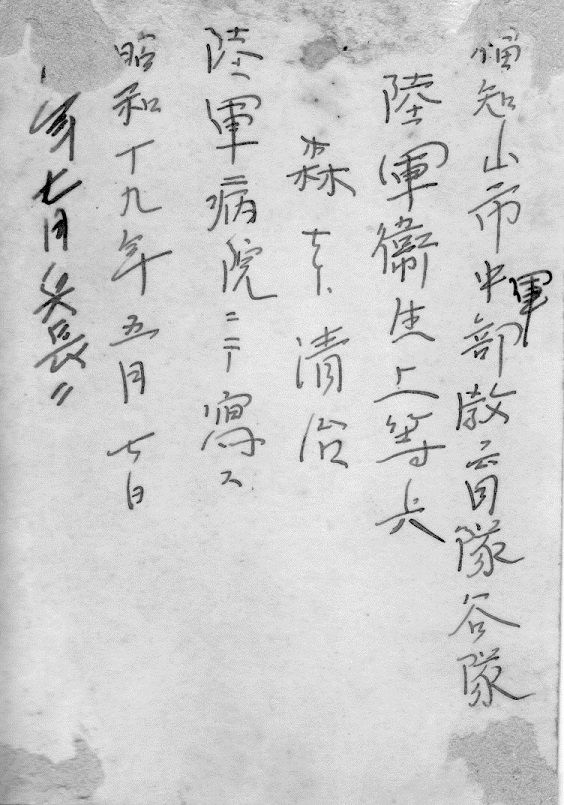 福知山市中部教育隊谷隊
軍
陸軍衛生上等兵
森 清治
陸軍病院ニテ寫ス
昭和十九年五月七日
年七月〃兵長〃